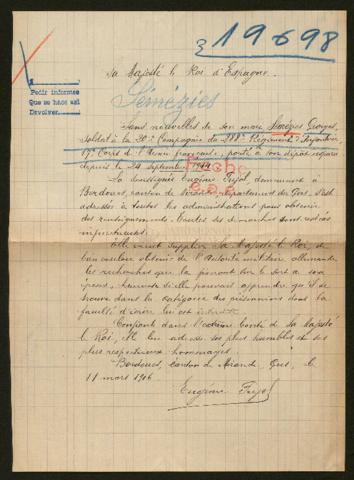 3 19698
Sa Majesté le Roi d'Espagne.
Pedir informes
Que se hace así
Devolver
Sémézies
Sans nouvelles de son mari Sémézies Georges,
Soldat à la 20e Compagnie du 288e Régiment d'Infanterie,
17e Corps d'Armée, porté à son dépôt disparu
depuis le 24 septembre 1914
Fiche
La soussignée Eugénie Pujol demeurant à
Bordoues, canton de Mirande, département du Gers, s'est
adressée à toutes les administrations pour obtenir
des renseignements. Toutes ses démarches sont restées
infructueuses.
Elle vient supplier Sa Majesté le Roi, de
bien vouloir obtenir de l'autorité militaire allemande
les recherches que la feront sur le sort de son
époux, heureuse si elle pouvait apprendre qu'il se
trouve dans la catégorie des prisonniers dont la
faculté d'écrire lui est interdite
Confiante dans l'extrême bonté de Sa Majesté
le Roi, Elle lui adresse ses plus humbles et ses
plus respectueux hommages.
Bordoues, Canton de Mirande, Gers, le
11 mars 1916
Eugénie Pujol